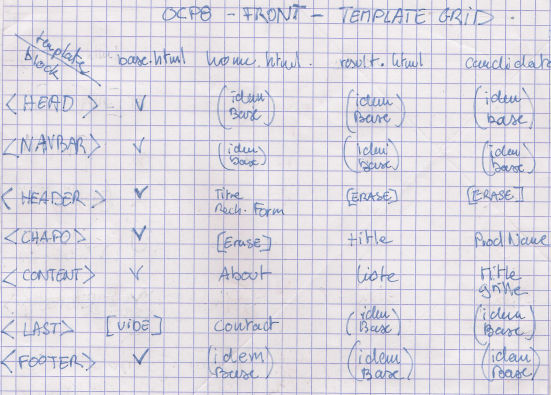 OCP8 - FRONT - TEMPLATE GRID.
template
block
base.html home.html. result.html candidate
<HEAD> ✓ (idem Base) (idem Base) (idem Base)
<NAVBAR> ✓ (idem base) (idem base) (idem base)
<HEADER> ✓ Titre Rech. Form [ERASE] [ERASE]
<CHAPO> ✓ [Erase] title Prod Name
<CONTENT> ✓ About liste title grille
<LAST> [VIDE] Contact (idem Base) (idem Base)
<FOOTER> ✓ (idem Base) (idem Base) (idem Base)